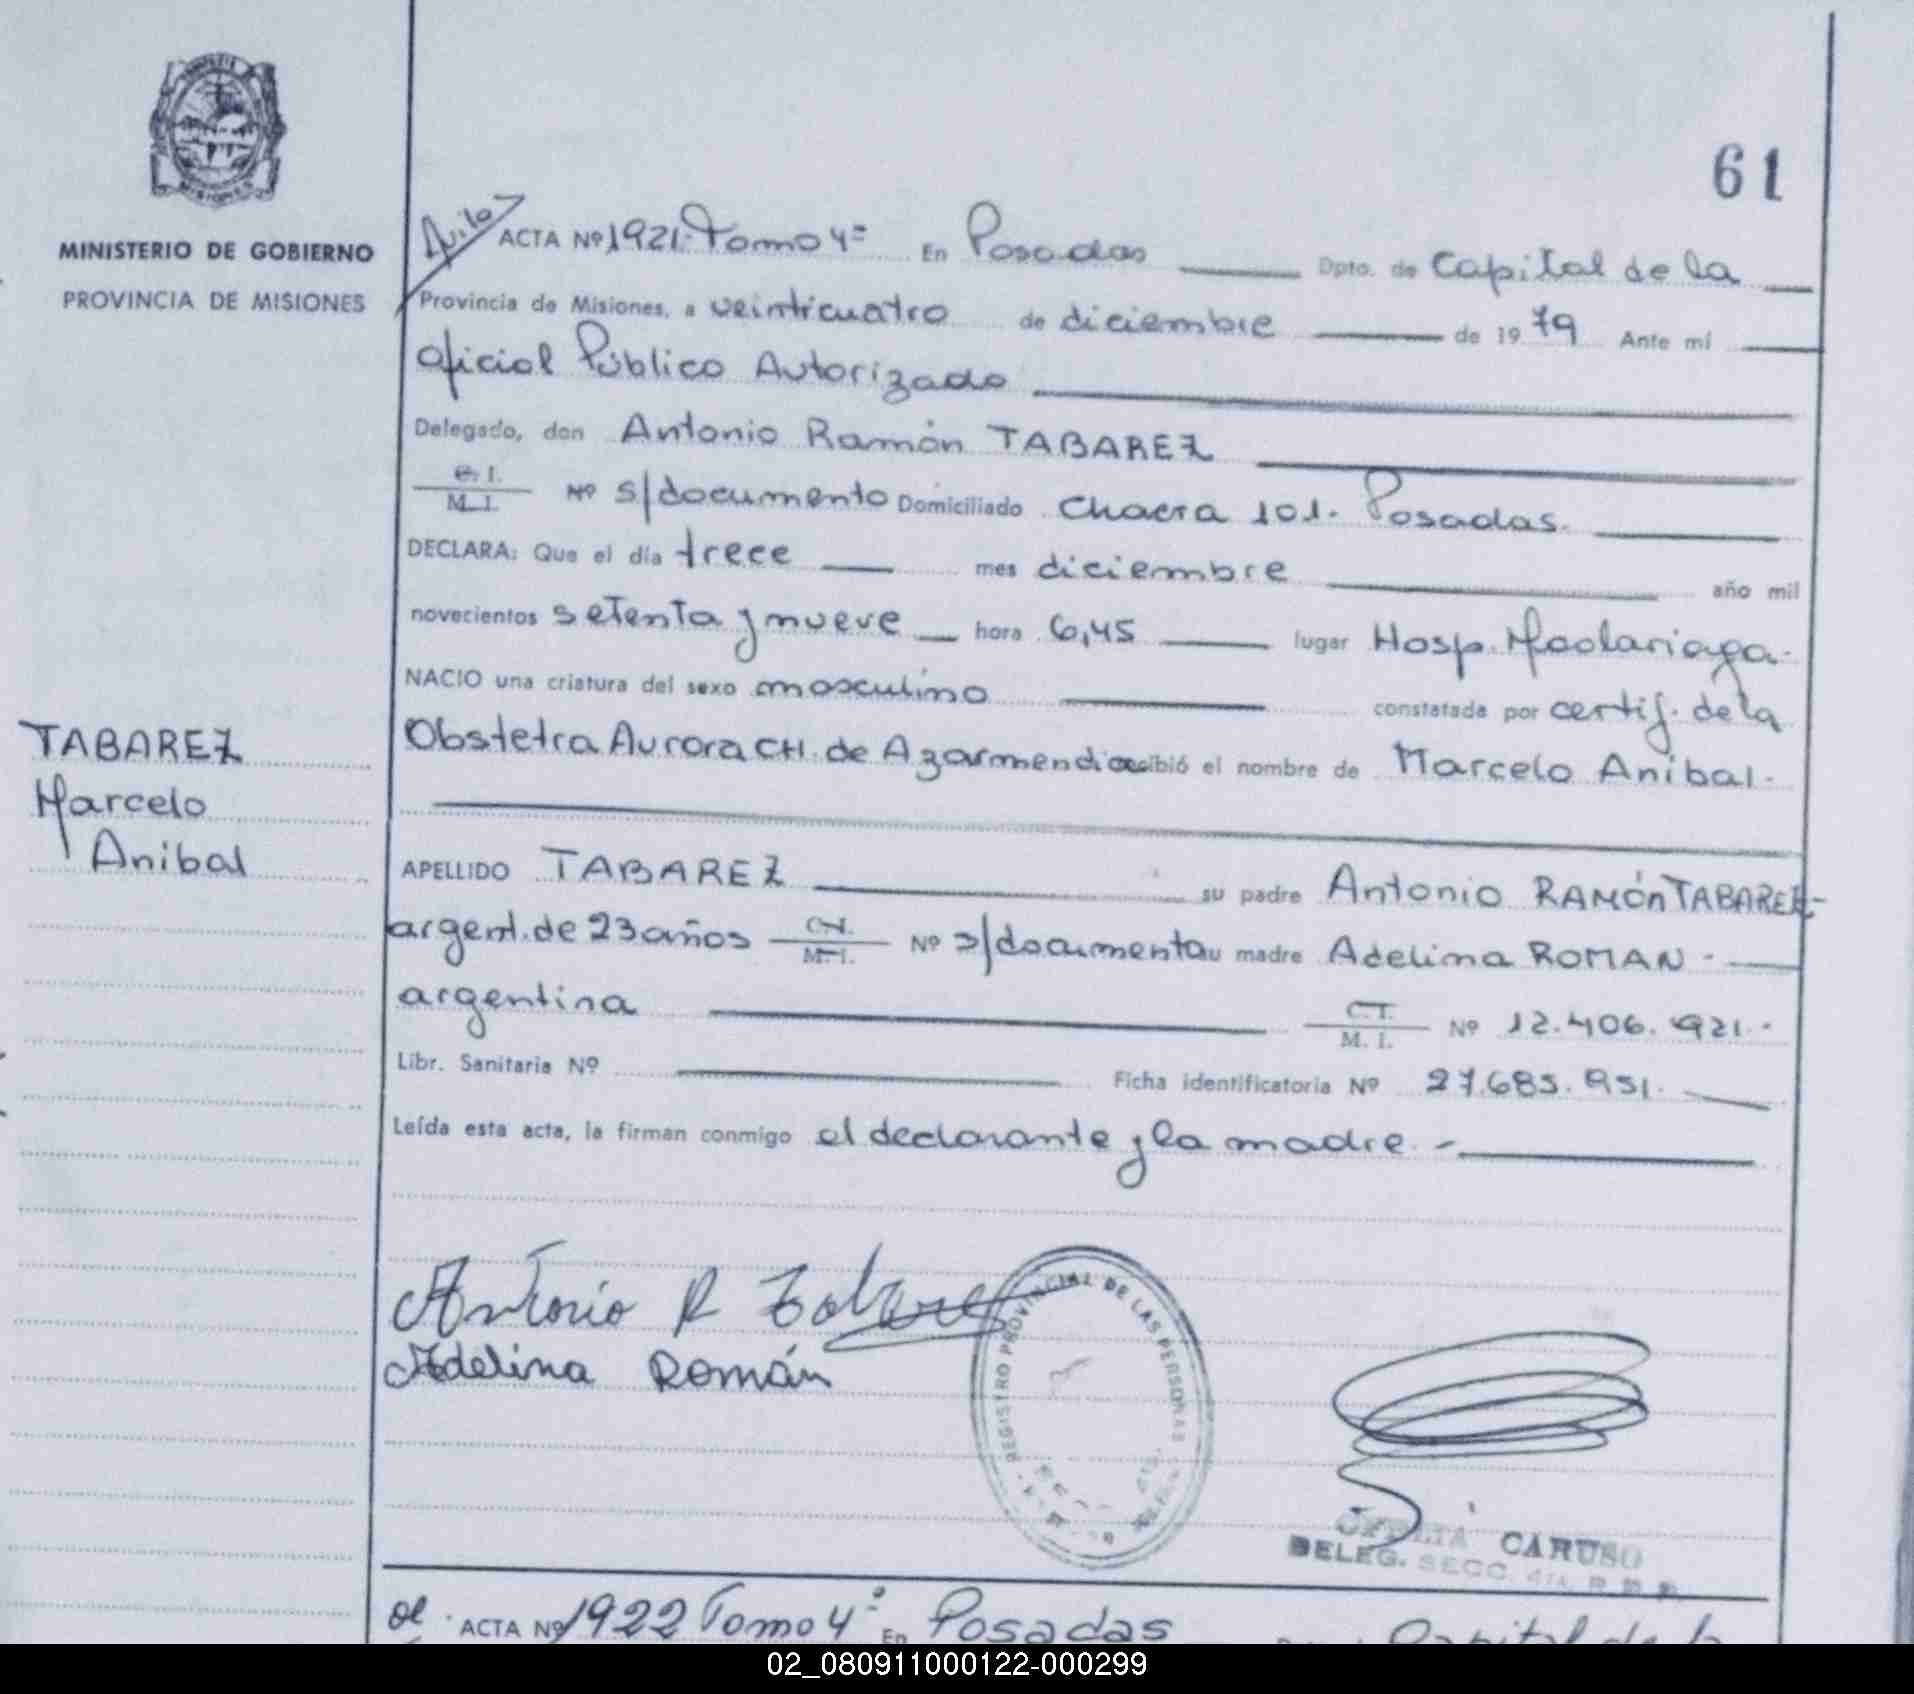 MISIONES
MINISTERIO DE GOBIERNO
PROVINCIA DE MISIONES
61
ACTA Nº 1921. Tomo 4º En Posadas Dpto. de Capital de la
Provincia de Misiones, a veinticuatro de diciembre de 1979 Ante mí
Oficial Público Autorizado
Delegado, don Antonio Ramón TABAREZ
C. I.
M. I. Nº s/documento Domiciliado Chacra 101. Posadas.
DECLARA: Que el día trece mes diciembre año mil
novecientos setenta y nueve hora 6,45 lugar Hosp. Madariaga.
NACIO una criatura del sexo masculino constatada por certif. de la
Obstetra Aurora CH. de Azarmendia recibió el nombre de Marcelo Anibal.
TABAREZ
Marcelo
Anibal
APELLIDO TABAREZ su padre Antonio RAMÓN TABAREZ
argent. de 23 años C.I. M. I. Nº s/documento su madre Adelina ROMAN
argentina C.I. M. I. Nº 12.406.921.
Libr. Sanitaria Nº Ficha identificatoria Nº 27.685.951.
Leída esta acta, la firman conmigo el declarante y la madre.
Antonio R Tabarez
Adelina Román
REGISTRO PROVINCIAL DE LAS PERSONAS
CARUSO
DELEG. SECC. 4TA.
ACTA Nº 1922 Tomo 4º En Posadas Capital de la
02_080911000122-000299